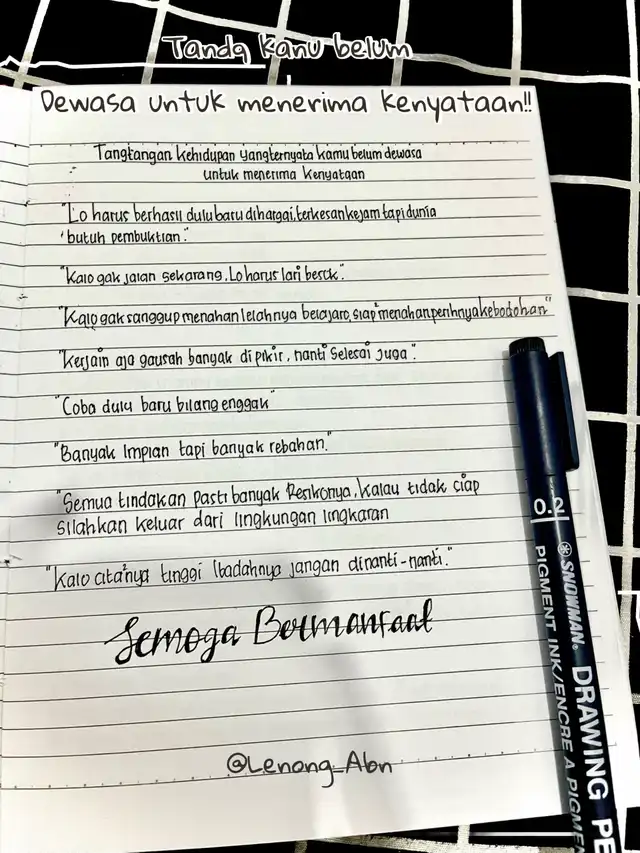 Tanda kamu belum
Dewasa untuk menerima kenyataan!!
Tangtangan kehidupan yang ternyata kamu belum dewasa
untuk menerima kenyataan
"Lo harus berhasil dulu baru dihargai, terkesan kejam tapi dunia
butuh pembuktian."
"Kalo gak jalan sekarang, Lo harus lari besok".
"Kalo gak sanggup menahan lelahnya belajar, siap² menahan perihnya kebodohan"
"Kerjain aja gausah banyak di pikir, nanti selesai juga".
"Coba dulu baru bilang enggak"
"Banyak Impian tapi banyak rebahan."
"Semua tindakan pasti banyak Resikonya, kalau tidak ciap
silahkan keluar dari lingkungan lingkaran
"Kalo cita²nya tinggi Ibadahnya jangan dinanti-nanti."
Semoga Bermanfaat
@Lenong_Abn
0.2
SNOWMAN.
DRAWING PE
PIGMENT INK/ENCRE A PIGMEN